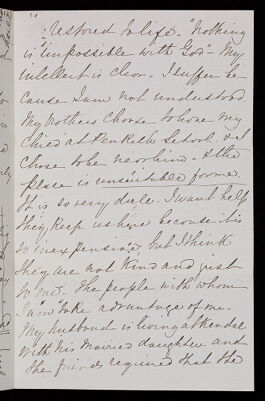 restored to life. "Nothing
is "impossible with God" My
intellect is clear. I suffer be
cause I am not understood.
My brothers choose to have my
Child at Penketh School. & I
chose to be near him. & the
place is unsuitable for me.
It is so very dull. I want help
they keep us here because it is
so inexpensive but I think
they are not kind and just
to me. The people with whom
I am take advantage of me.
My husband is living at Kendal
with his married daughter and
the friends required that the